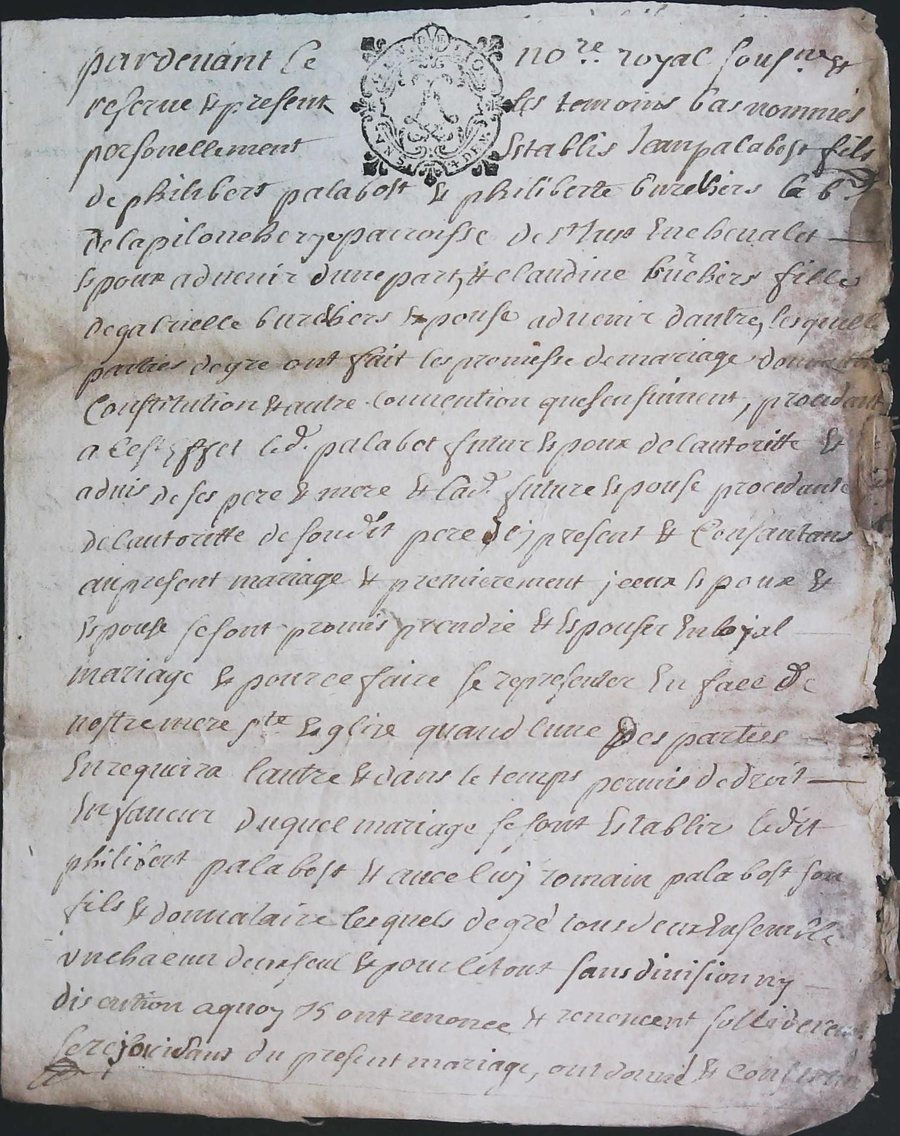 pardevant le no.re royal sousn.é &
reserve & present les temoins bas nommés
personellement Establis Jean palabost fils
de philibert palabost & philiberte burchers la b.
De la pilonchery parroisse De st Just En chevalet
Espoux advenir d'une part, & claudine bûrchers fille
De gabrielle burchers Espouse advenir d'autre, lesquelle
parties de gre ont fait les promesse de mariage
Constitution & autre convention que sensuivent, procedant
a Cest Effet led. palabot futur Espoux de lautoritte &
advis de ses pere & mere & lad. future Espouse procedante
De lautoritte de son dit pere Icy present & Consantans
au present mariage & premierement jceux Espoux &
Espouse se sont promis prendre & Espouser En loyal
mariage & pour ce faire se representer En face De
nostre mere s.te Esglize quand lune Des parties
En requerra l'autre & dans le temps permis de droit
En faveur Duquel mariage se sont Establir ledit
philibert palabost & avec luy romain palabost son
fils & donnataire lesquels de gré tous deux Ensemble
un chacun deux seul & pour le tout sans division ny
discution a quoy Ils ont renoncé & renoncent sollidere
se rejouissans du present mariage, ont donné &